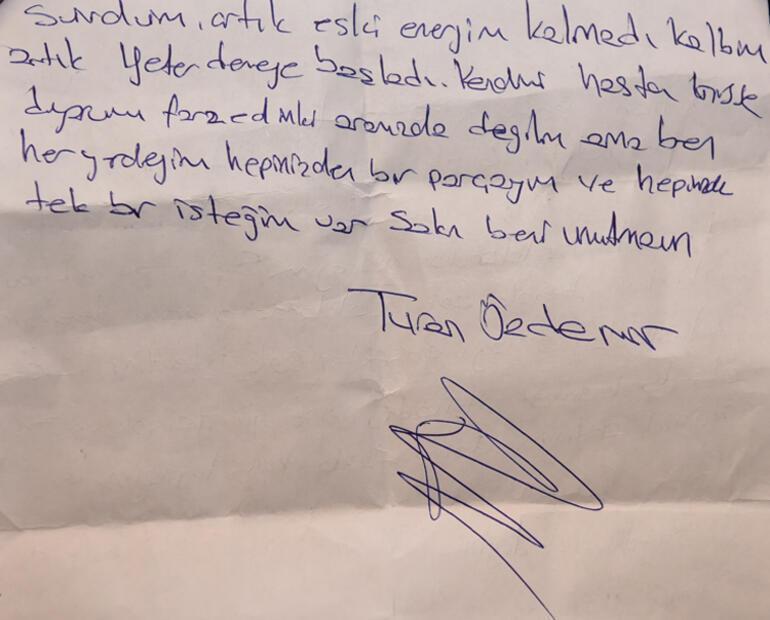 Surdum, artık eski enerjim kalmadı kalbim
artık yeter demeye başladı. Kendimi hasta
farzedinki aranızda değilim ama ben
her yerdeyim hepinizden bir parçayım ve hepinizden
tek bir isteğim var Sakın beni unutmayın
Turan Özdemir